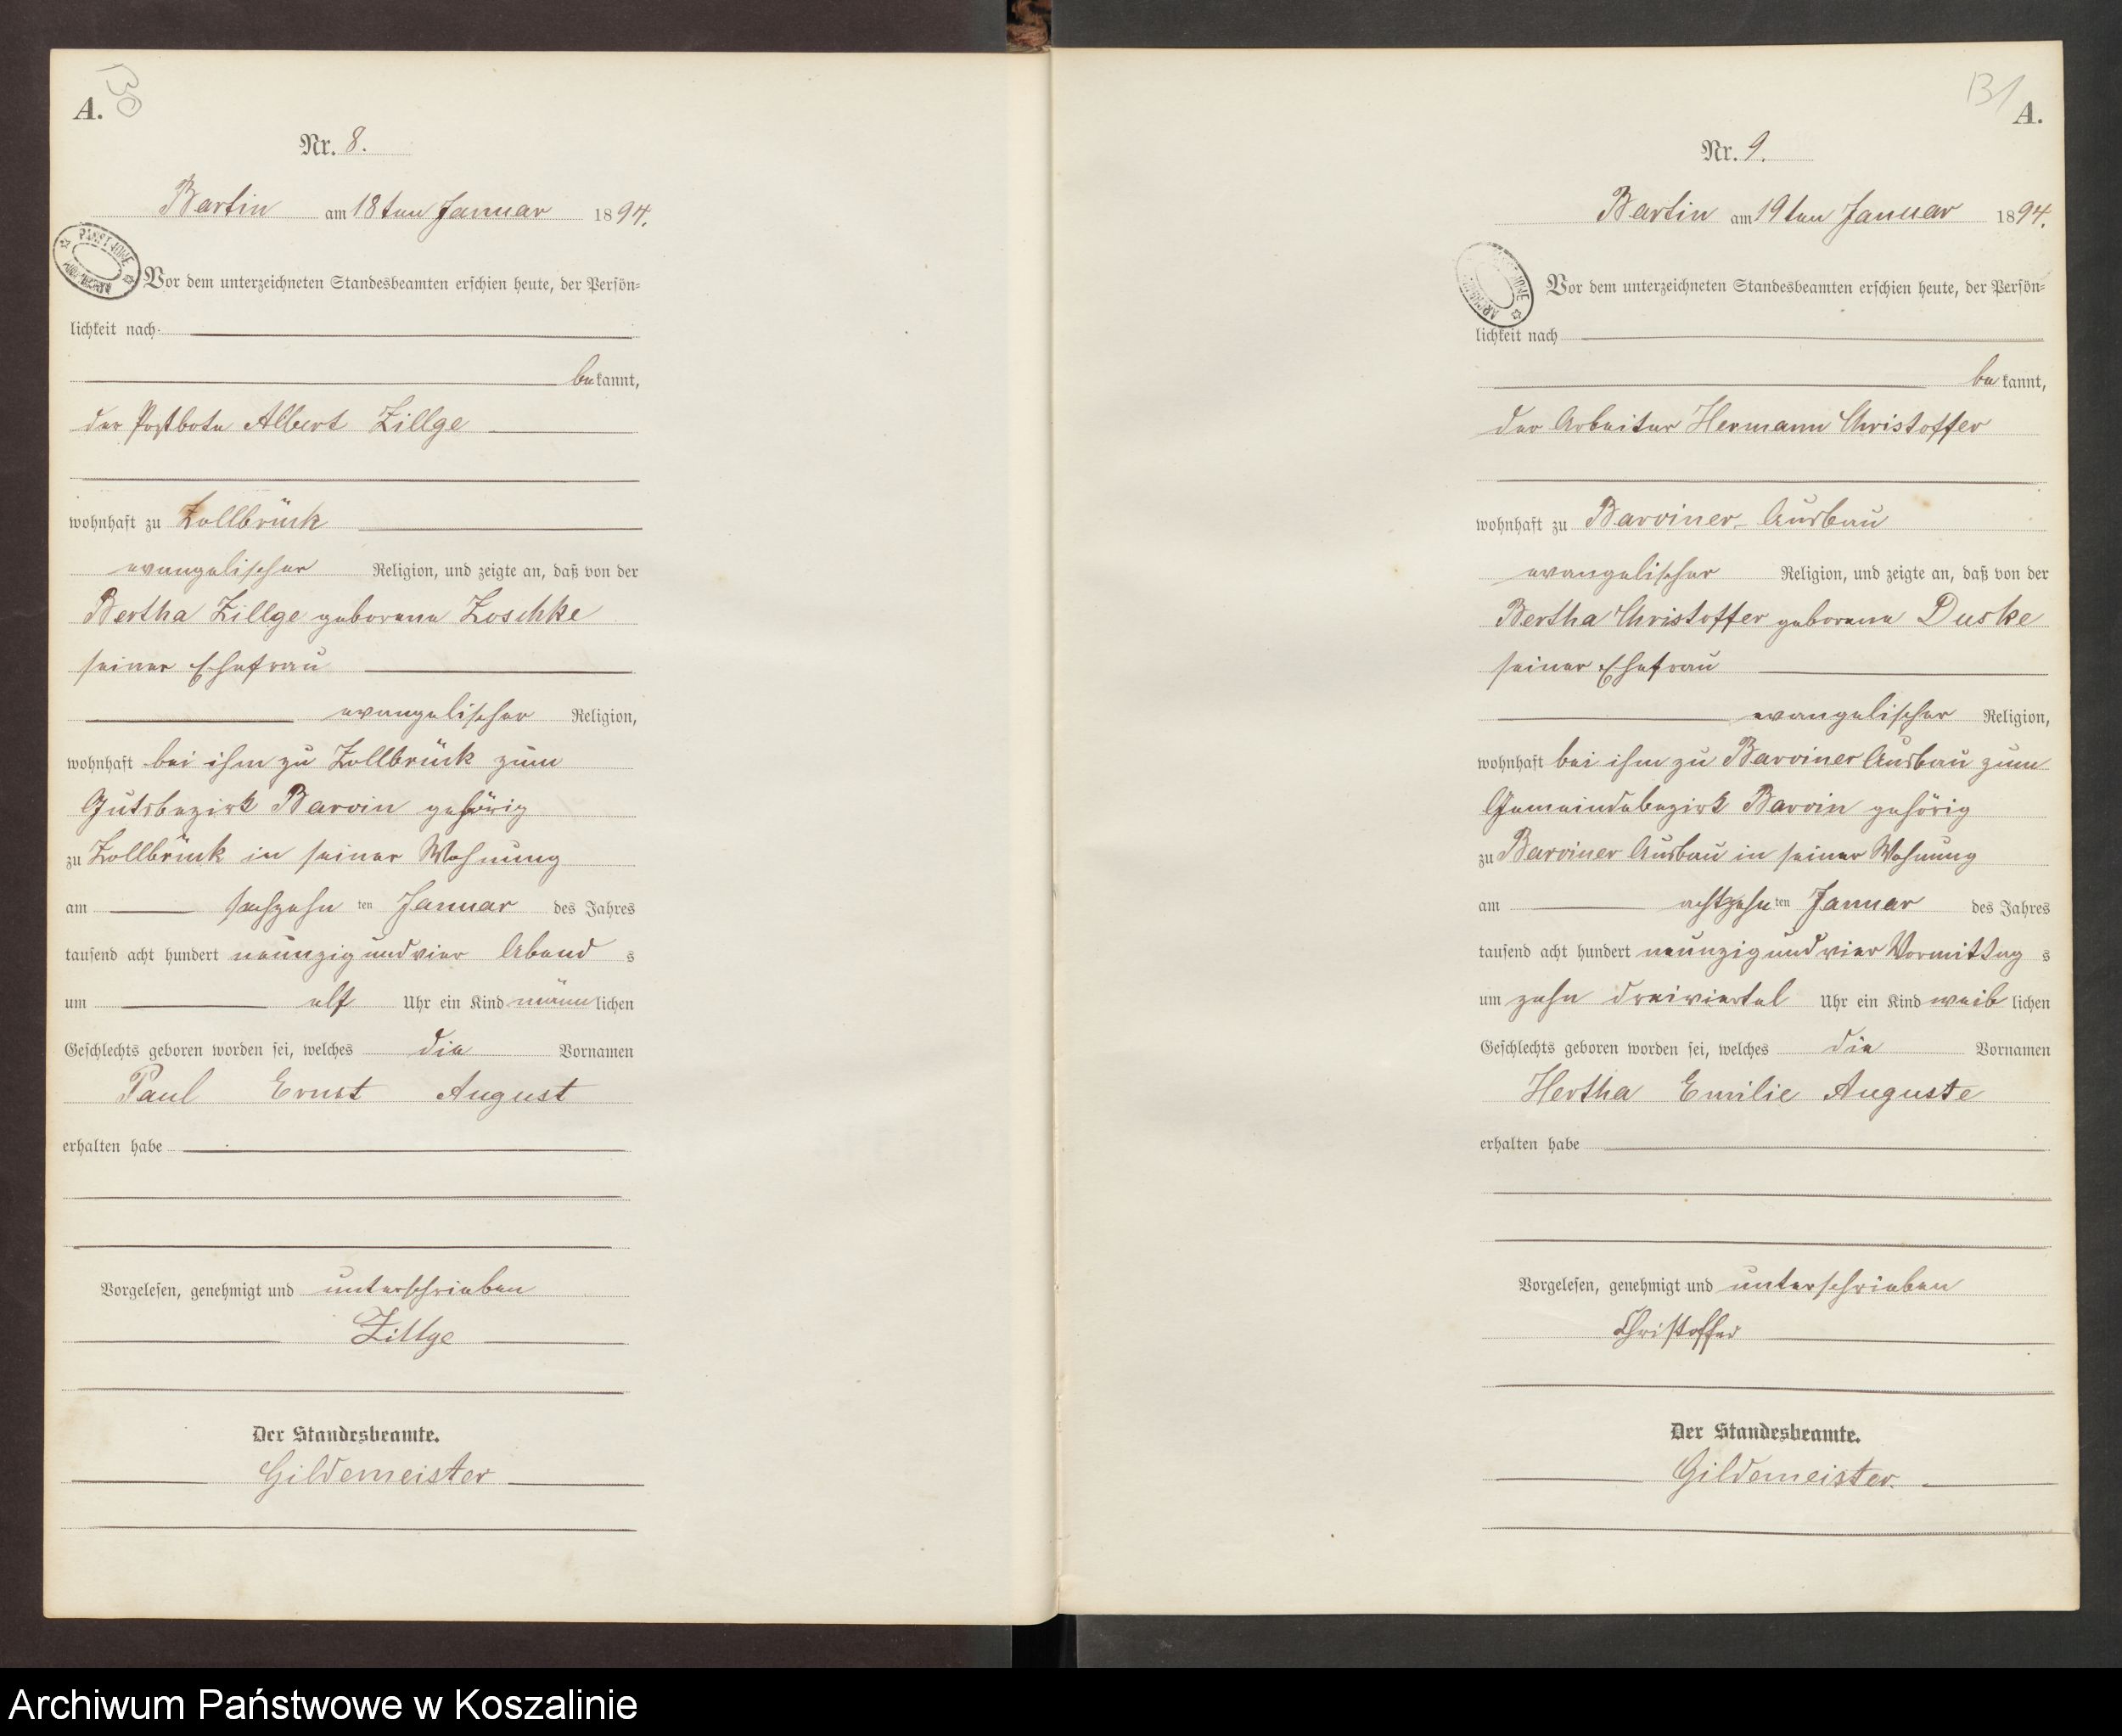 130
A.
Nr. 8.
Bartin am 18ten Januar 1894.
Vor dem unterzeichneten Standesbeamten erschien heute, der Persön-
lichkeit nach
bekannt,
der Postbote Albert Zillge
wohnhaft zu Zollbrück
evangelischer Religion, und zeigte an, daß von der
Bertha Zillge geborene Zoschke
seiner Ehefrau
evangelischer Religion,
wohnhaft bei ihm zu Zollbrück zum
Gutsbezirk Barvin gehörig
zu Zollbrück in seiner Wohnung
am sechzehn ten Januar des Jahres
tausend acht hundert neunzig und vier Abend s
um elf Uhr ein Kind männlichen
Geschlechts geboren worden sei, welches die Vornamen
Paul Ernst August
erhalten habe
Vorgelesen, genehmigt und unterschrieben
Zillge
Der Standesbeamte.
Gildemeister
131
A.
Nr. 9.
Bartin am 19ten Januar 1894.
Vor dem unterzeichneten Standesbeamten erschien heute, der Persön-
lichkeit nach
bekannt,
der Arbeiter Hermann Christoffer
wohnhaft zu Barviner-Ausbau
evangelischer Religion, und zeigte an, daß von der
Bertha Christoffer geborene Duske
seiner Ehefrau
evangelischer Religion,
wohnhaft bei ihm zu Barviner Ausbau zum
Gemeindebezirk Barvin gehörig
zu Barviner Ausbau in seiner Wohnung
am achtzehn ten Januar des Jahres
tausend acht hundert neunzig und vier Vormittag s
um zehn dreiviertel Uhr ein Kind weiblichen
Geschlechts geboren worden sei, welches die Vornamen
Hertha Emilie Auguste
erhalten habe
Vorgelesen, genehmigt und unterschrieben
Christoffer
Der Standesbeamte.
Gildemeister.
Archiwum Państwowe w Koszalinie